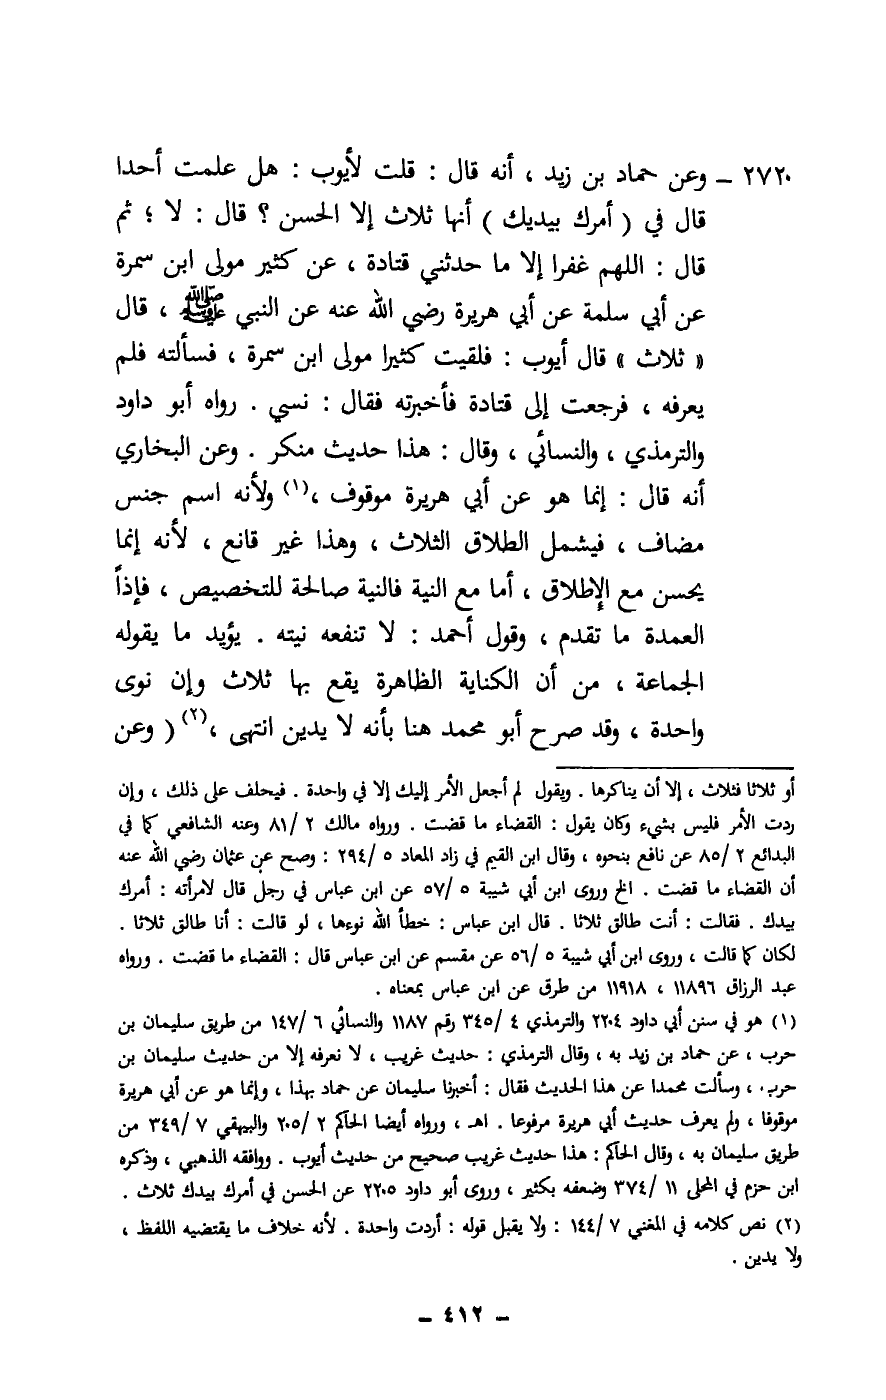 ٢٧٢٠ ــ وعن حماد بن زيد ، أنه قال : قلت لأيوب : هل علمت أحدا
قال في ( أمرك بيديك ) أنها ثلاث إلا الحسن ؟ قال : لا ؛ ثم
قال : اللهم غفرا إلا ما حدثني قتادة ، عن كثير مولى ابن سمرة
عن أبي سلمة عن أبي هريرة رضي الله عنه عن النبي ﷺ ، قال
« ثلاث » قال أيوب : فلقيت كثيرا مولى ابن سمرة ، فسألته فلم
يعرفه ، فرجعت إلى قتادة فأخبرته فقال : نسي . رواه أبو داود
والترمذي ، والنسائي ، وقال : هذا حديث منكر . وعن البخاري
أنه قال : إنما هو عن أبي هريرة موقوف ،(١) ولأنه اسم جنس
مضاف ، فيشمل الطلاق الثلاث ، وهذا غير قانع ، لأنه إنما
يحسن مع الإطلاق ، أما مع النية فالنية صالحة للتخصيص ، فإذاً
العمدة ما تقدم ، وقول أحمد : لا تنفعه نيته . يؤيد ما يقوله
الجماعة ، من أن الكناية الظاهرة يقع بها ثلاث وإن نوى
واحدة ، وقد صرح أبو محمد هنا بأنه لا يدين انتهى ،(٢) ( وعن
أو ثلاثا فثلاث ، إلا أن يناكرها . ويقول لم أجعل الأمر إليك إلا في واحدة . فيحلف على ذلك ، وإن
ردت الأمر فليس بشيء وكان يقول : القضاء ما قضت . ورواه مالك ٢ /٨١ وعنه الشافعي كما في
البدائع ٢ /٨٥ عن نافع بنحوه ، وقال ابن القيم في زاد المعاد ٥ /٢٩٤ : وصح عن عثمان رضي الله عنه
أن القضاء ما قضت . الخ وروى ابن أبي شيبة ٥ /٥٧ عن ابن عباس في رجل قال لامرأته : أمرك
بيدك . فقالت : أنت طالق ثلاثا . قال ابن عباس : خطأ الله نوءها ، لو قالت : أنا طالق ثلاثا .
لكان كما قالت ، وروى ابن أبي شيبة ٥ /٥٦ عن مقسم عن ابن عباس قال : القضاء ما قضت . ورواه
عبد الرزاق ١١٨٩٦ ، ١١٩١٨ من طرق عن ابن عباس بمعناه .
(١) هو في سنن أبي داود ٢٢٠٤ والترمذي ٤ /٣٤٥ رقم ١١٨٧ والنسائي ٦ /١٤٧ من طريق سليمان بن
حرب ، عن حماد بن زيد به ، وقال الترمذي : حديث غريب ، لا نعرفه إلا من حديث سليمان بن
حرب ، وسألت محمدا عن هذا الحديث فقال : أخبرنا سليمان عن حماد بهذا ، وإنما هو عن أبي هريرة
موقوفا ، ولم يعرف حديث أبي هريرة مرفوعا . اهـ ، ورواه أيضا الحاكم ٢ /٢٠٥ والبيهقي ٧ /٣٤٩ من
طريق سليمان به ، وقال الحاكم : هذا حديث غريب صحيح من حديث أيوب . ووافقه الذهبي ، وذكره
ابن حزم في المحلى ١١ /٣٧٤ وضعفه بكثير ، وروى أبو داود ٢٢٠٥ عن الحسن في أمرك بيدك ثلاث .
(٢) نص كلامه في المغني ٧ /١٤٤ : ولا يقبل قوله : أردت واحدة . لأنه خلاف ما يقتضيه اللفظ ،
ولا يدين .
ــ ٤١٢ ــ